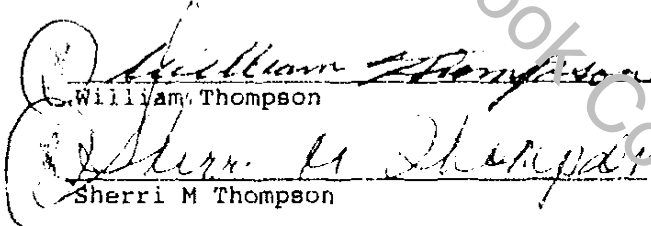 William Thompson
William Thompson
Sherri M Thompson
Sherri M Thompson
ook Co